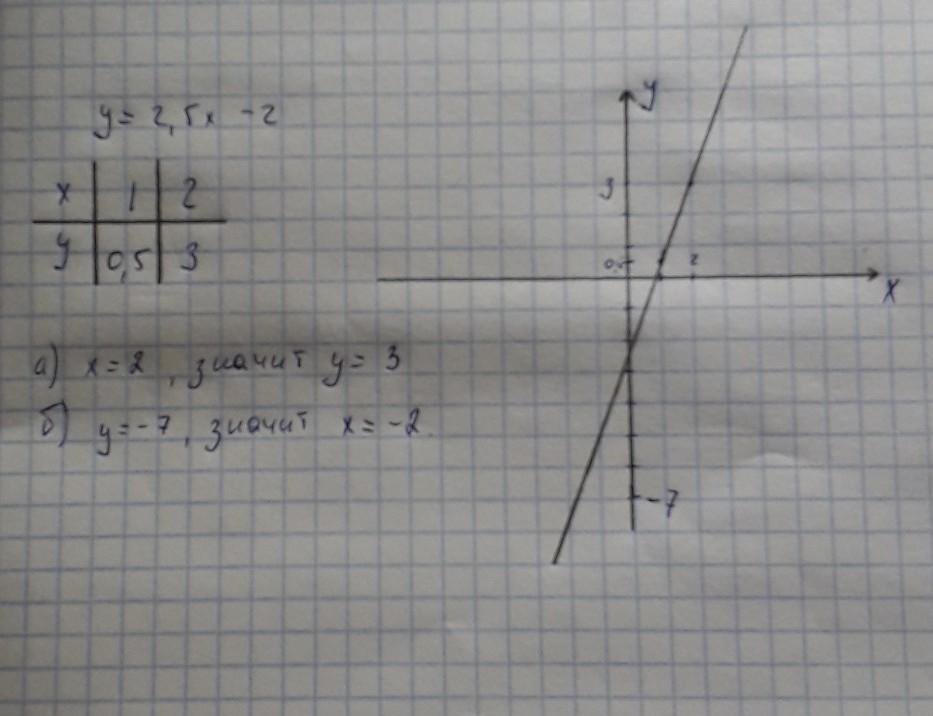 y = 2,5x - 2
x 1 2
y 0,5 3
а) x = 2 , значит y = 3
б) y = -7 , значит x = -2.
y
3
0,5 2
x
-7